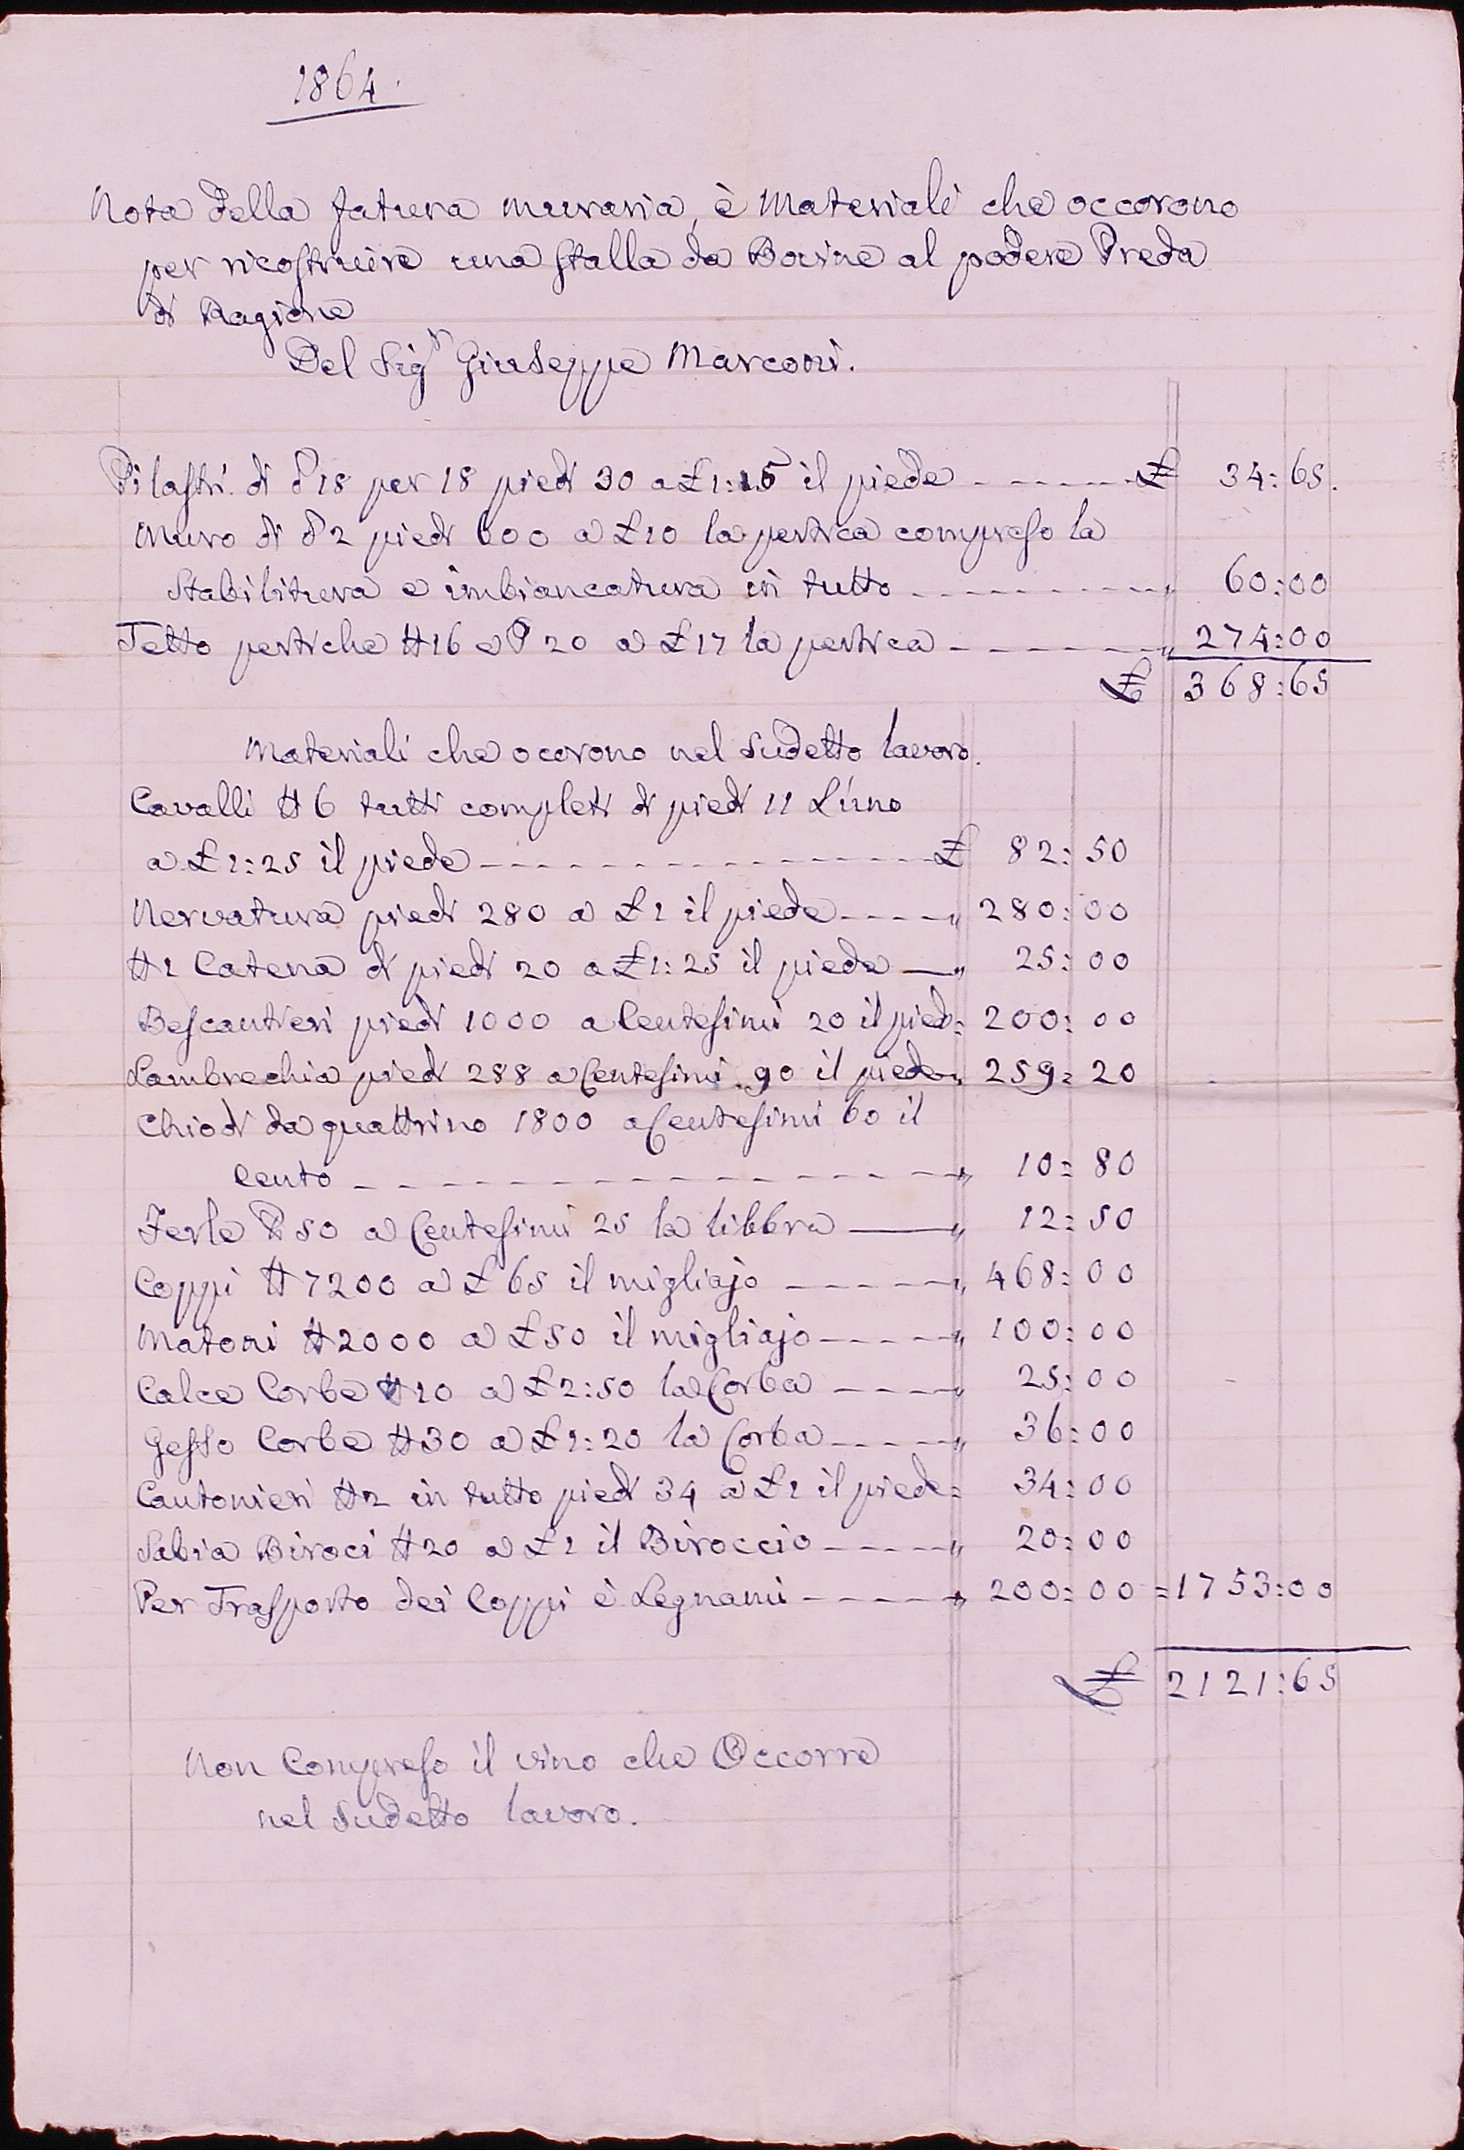 1864.
Nota della fatura muraria, è Materiali che occorono
per ricostruire una stalla da Bovine al podere Preda
di Ragione
Del Sigr Giuseppe Marconi.
Pilastri di d 18 per 18 piedi 30 a £ 1:15 il piede £ 34:65.
Muro di d 2 piedi 600 a £ 10 la pertica compreso la
Stabilitura e imbiancatura in tutto " 60:00
Tetto pertiche N 16 e P 20 a £ 17 la pertica " 274:00
£ 368:65
Materiali che ocorono nel sudetto lavoro.
Cavalli N 6 tutti completi di piedi 11 L'uno
a £ 1:25 il piede £ 82:50
Nervatura piedi 280 a £ 1 il piede " 280:00
N 1 Catena di piedi 20 a £ 1:25 il piede " 25:00
Bescantieri piedi 1000 a Centesimi 20 il pied: 200:00
Lambrechia piedi 288 a Centesimi 90 il piede " 259:20
Chiodi da quattrino 1800 a Centesimi 60 il
Cento " 10:80
Ferle 50 a Centesimi 25 la libbra " 12:50
Coppi N 7200 a £ 65 il migliajo " 468:00
Matoni N 2000 a £ 50 il migliajo " 100:00
Calce Corbe N 10 a £ 2:50 la Corba " 25:00
Gesso Corbe N 30 a £ 1:20 la Corba " 36:00
Cantonieri N 2 in tutto piedi 34 a £ 1 il piede: 34:00
Sabia Biroci N 20 a £ 1 il Biroccio " 20:00
Per Trasporto dei Coppi è Legnami " 200:00 = 1753:00
£ 2121:65
Non Compreso il vino che Occorre
nel sudetto lavoro.